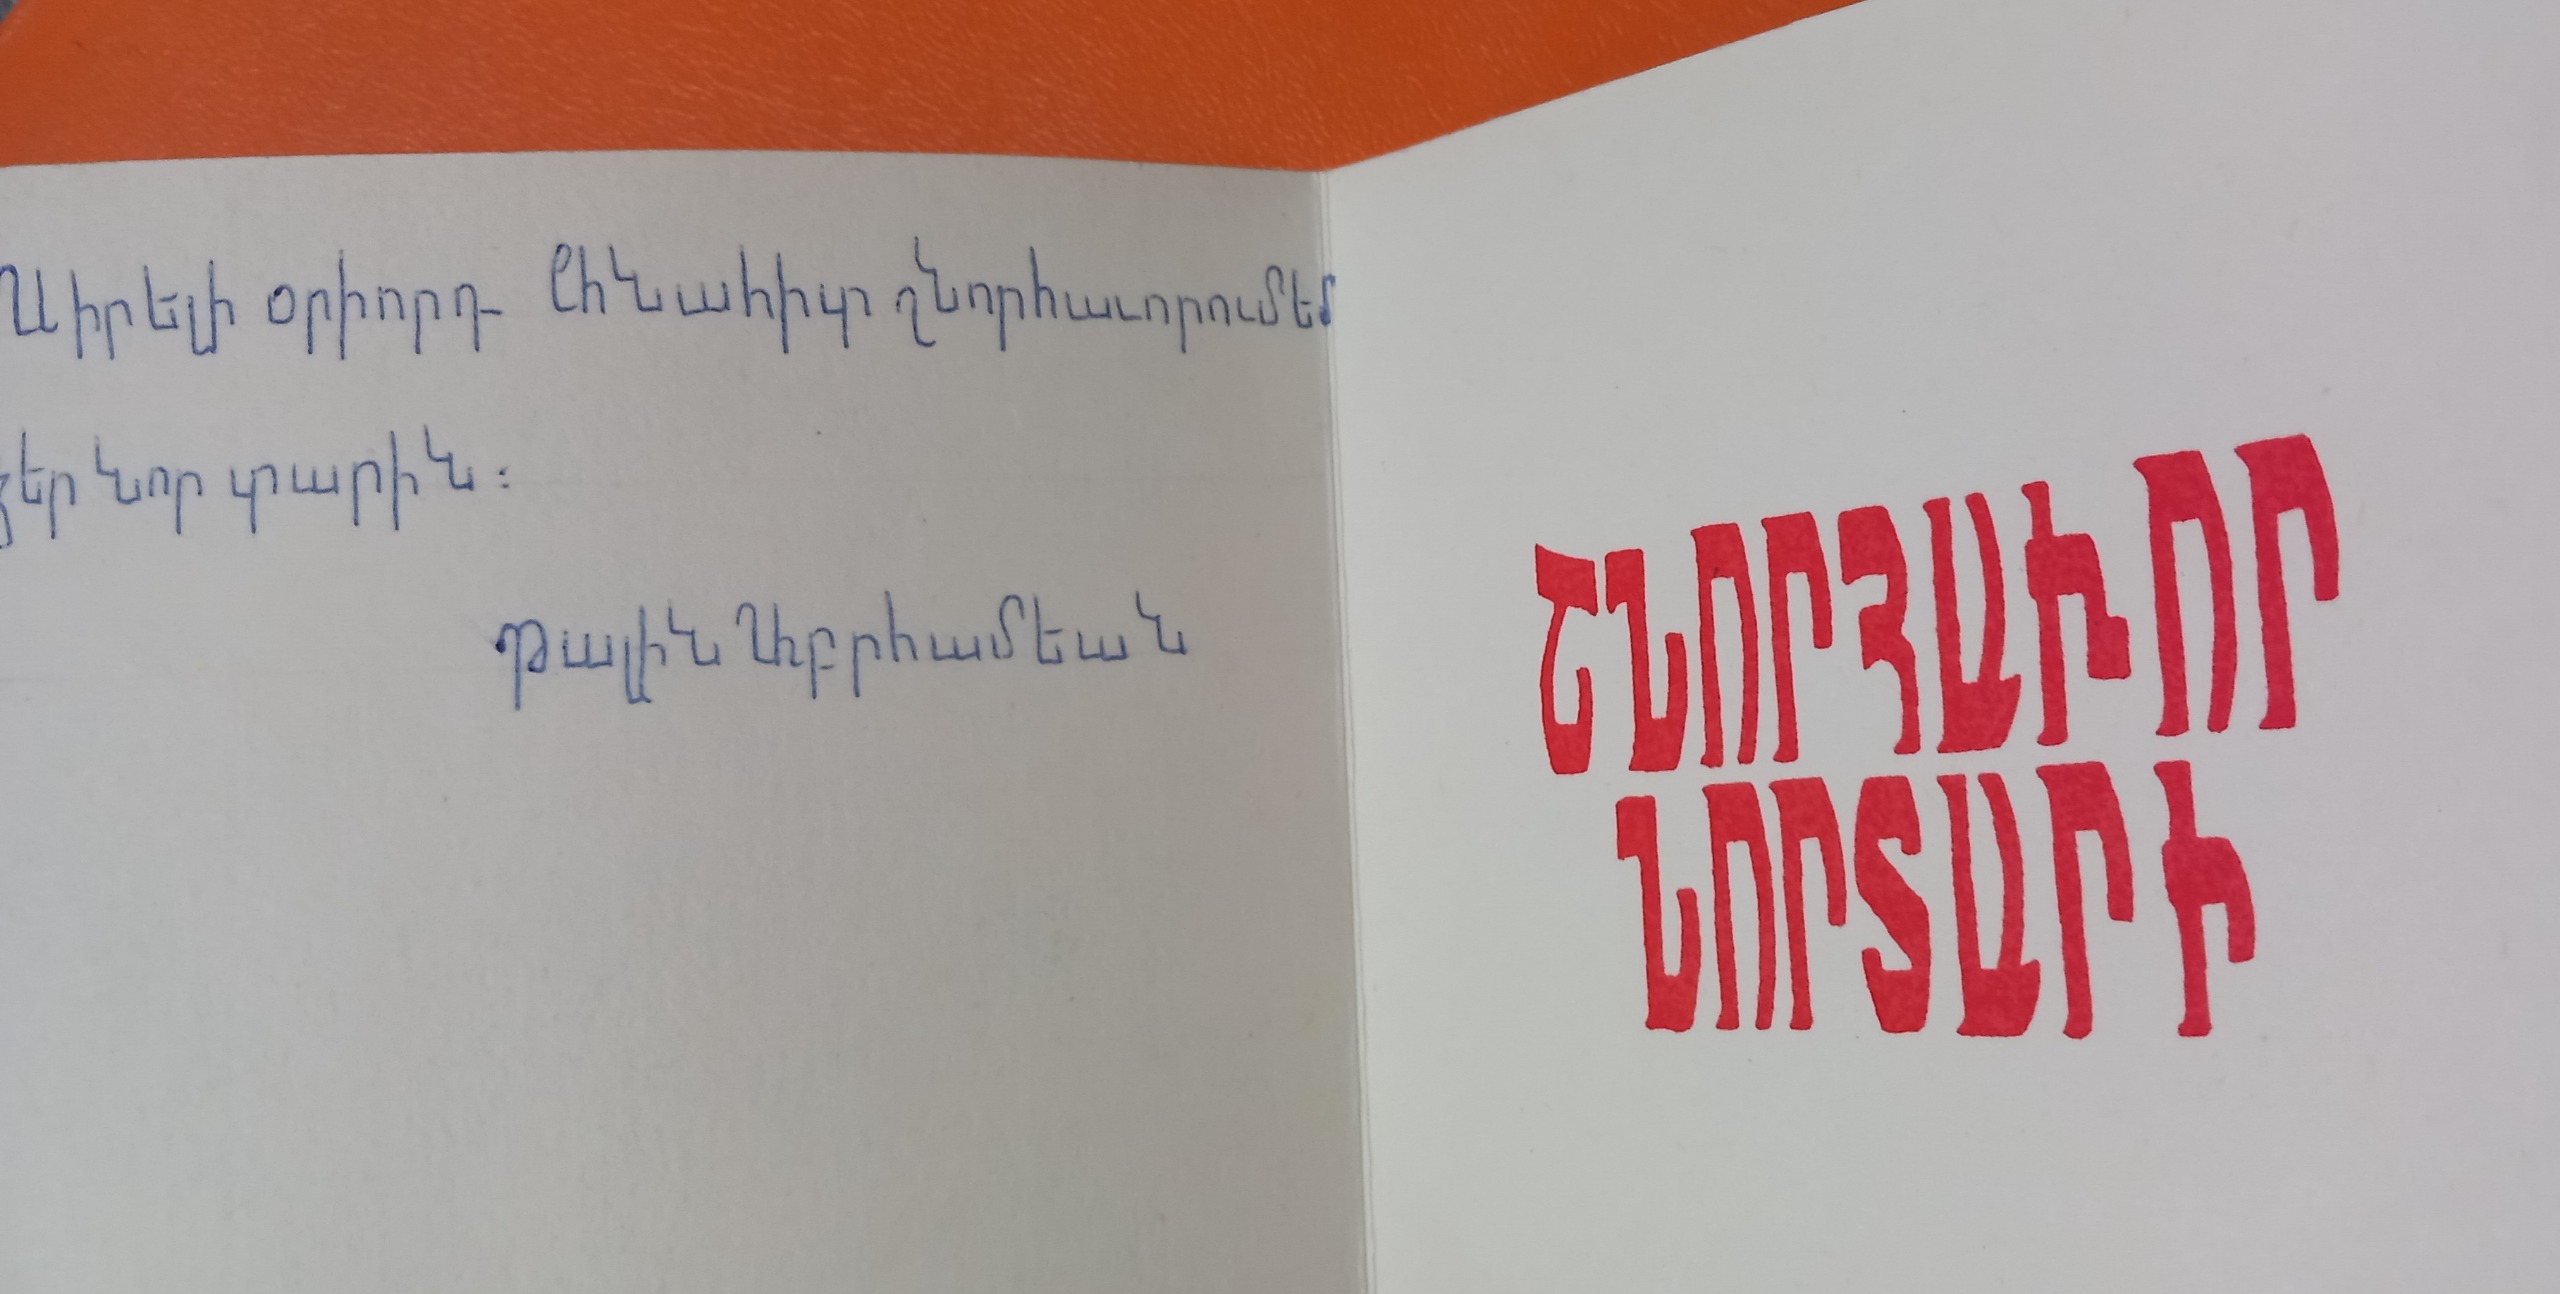 Սիրելի օրիորդ շնորհաւորում եմ
ձեր նոր տարին։
Թալին Աբրհամեան
ՇՆՈՐՀԱՒՈՐ
ՆՈՐ ՏԱՐԻ